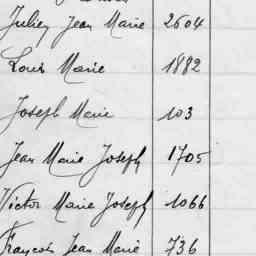 Julien Jean Marie 2604
Louis Marie 1882
Joseph Marie 103
Jean Marie Joseph 1705
Victor Marie Joseph 1066
François Jean Marie 736